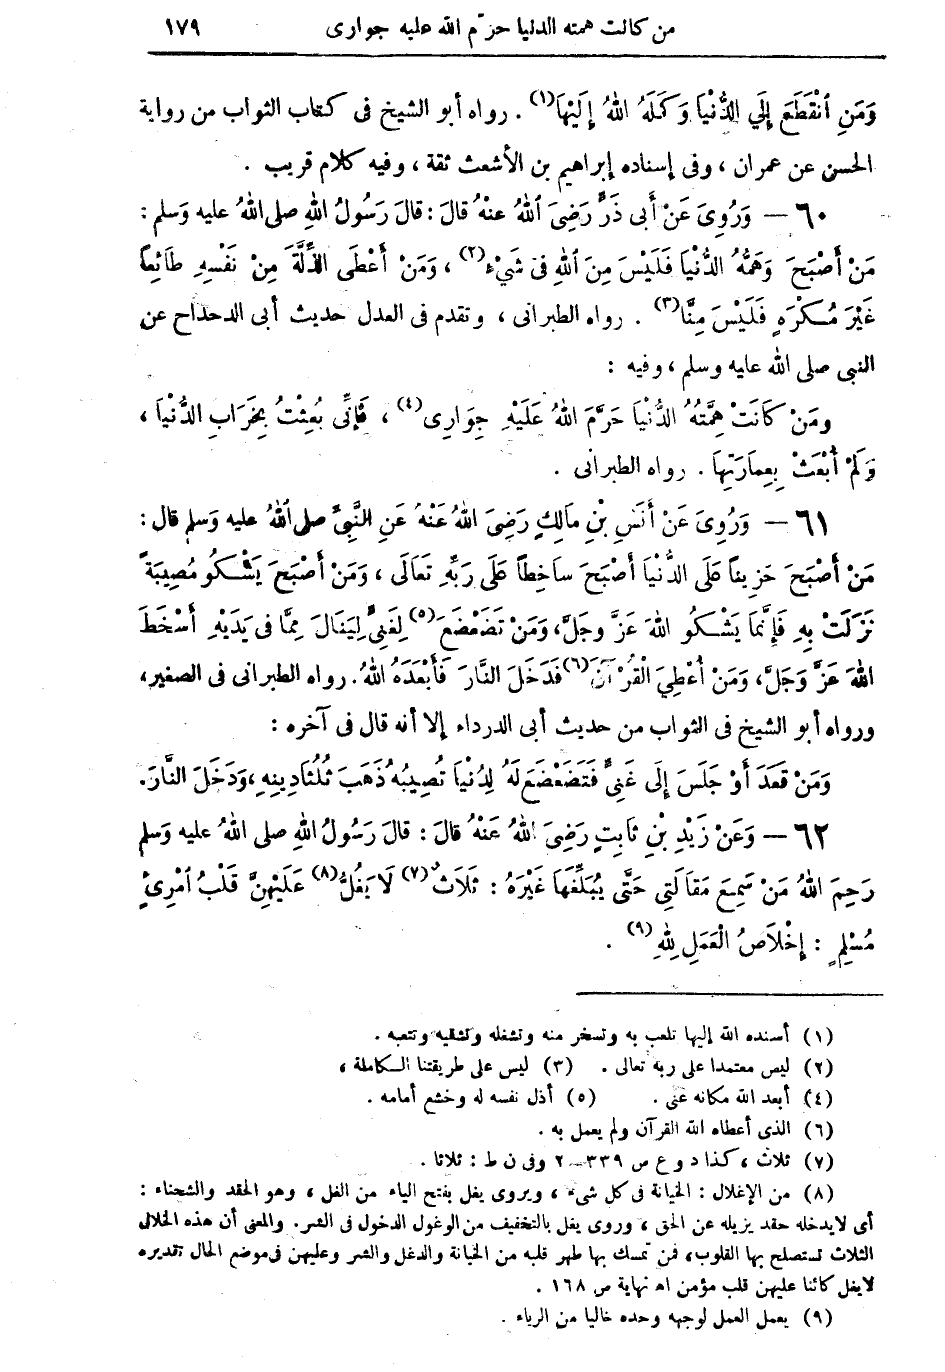 من كانت همته الدنيا حرّم الله عليه جوارى ١٧٩
وَمَنِ ٱنْقَطَعَ إِلَي الدُّنْيَا وَكَلَهُ اللهُ إِلَيْهَا(١) . رواه أبو الشيخ فى كتاب الثواب من رواية
الحسن عن عمران ، وفى إسناده إبراهيم بن الأشعث ثقة ، وفيه كلام قريب .
٦٠ — وَرُوِىَ عَنْ أَبِى ذَرٍّ رَضِىَ ٱللهُ عنْهُ قالَ : قالَ رَسُولُ اللهِ صلى اللهُ عليه وَسلم :
مَنْ أَصْبَحَ وَهَمُّهُ الدُّنْيَا فَلَيْسَ مِنَ ٱللهِ فى شَىْءٍ(٢) ، وَمَنْ أَعْطَى الذِّلَّةَ مِنْ نَفْسِهِ طَائِعاً
غَيْرَ مُكْرَهٍ فَلَيْسَ مِنَّا(٣) . رواه الطبرانى ، وتقدم فى العدل حديث أبى الدحداح عن
النبى صلى الله عليه وسلم ، وفيه :
ومَنْ كَانَتْ هِمَّتُهُ الدُّنْيَا حَرَّمَ اللهُ عَلَيْهِ جِوَارِى(٤) ، فَإِنِّى بُعِثْتُ بِخَرَابِ الدُّنْيَا ،
وَلَمْ أُبْعَثْ بِعِمَارَتِهَا . رواه الطبرانى .
٦١ — وَرُوِىَ عَنْ أَنَسِ بْنِ مَالِكٍ رَضِىَ اللهُ عَنْهُ عَنِ النَّبِىِّ صلى ٱللهُ عليه وَسلم قال :
مَنْ أَصْبَحَ حَزِيناً عَلَى الدُّنْيَا أَصْبَحَ سَاخِطاً عَلَى رَبِّهِ تَعَالَى ، وَمَنْ أَصْبَحَ يَشْكُو مُصِيبَةً
نَزَلَتْ بِهِ فَإِنَّمَا يَشْكُو اللهَ عَزَّ وجَلَّ، وَمَنْ تَضَعْضَعَ(٥) لِغَنِىٍّ لِيَنَالَ مِمَّا فى يَدَيْهِ أَسْخَطَ
اللهَ عَزَّ وَجَلَّ، وَمَنْ أُعْطِىَ الْقُرْآنَ(٦) فَدَخَلَ النَّارَ فَأَبْعَدَهُ اللهُ. رواه الطبرانى فى الصغير،
ورواه أبو الشيخ فى الثواب من حديث أبى الدرداء إلا أنه قال فى آخره :
وَمَنْ قَعَدَ أَوْ جَلَسَ إِلَى غَنِىٍّ فَتَضَعْضَعَ لَهُ لِدُنْيَا تُصِيبُهُ ذَهَبَ ثُلُثَا دِينِهِ، وَدَخَلَ النَّارَ.
٦٢ — وَعَنْ زَيْدِ بْنِ ثَابِتٍ رَضِىَ اللهُ عَنْهُ قالَ : قالَ رَسُولُ اللهِ صلى اللهُ عليه وَسلم
رَحِمَ اللهُ مَنْ سَمِعَ مَقَالَتِى حَتَّى يُبَلِّغَهَا غَيْرَهُ : ثَلاَثٌ(٧) لَا يَغُلُّ(٨) عَلَيْهِنَّ قَلْبُ ٱمْرِئٍ
مُسْلِمٍ : إِخْلاَصُ الْعَمَلِ لِلهِ(٩) .
(١) أسنده الله إليها تلعب به وتسخر منه وتشغله وتشقيه وتتعبه .
(٢) ليس معتمدا على ربه تعالى . (٣) ليس على طريقتنا الكاملة ،
(٤) أبعد الله مكانه عنى . (٥) أذل نفسه له وخشع أمامه .
(٦) الذى أعطاه الله القرآن ولم يعمل به .
(٧) ثلاث ، كذا د و ع ص ٣٣٩ — ٢ وفى ن ط : ثلاثا .
(٨) من الإغلال : الخيانة فى كل شىء ، ويروى يغل بفتح الياء من الغل ، وهو الحقد والشحناء :
أى لا يدخله حقد يزيله عن الحق ، وروى يغل بالتخفيف من الوغول الدخول فى الشر. والمعنى أن هذه الخلال
الثلاث تستصلح بها القلوب، فمن تمسك بها طهر قلبه من الخيانة والدغل والشر وعليهن فى موضع الحال تقديره
لا يغل كائنا عليهن قلب مؤمن اه نهاية ص ١٦٨ .
(٩) يعمل العمل لوجهه وحده خاليا من الرياء .